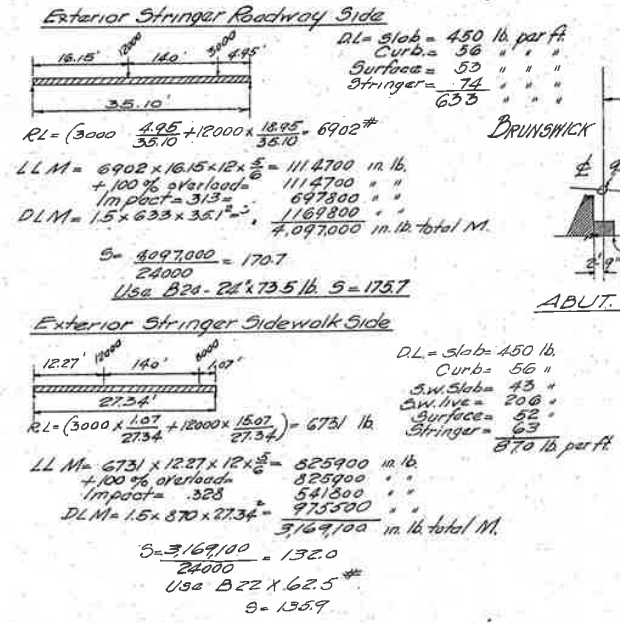 Exterior Stringer Roadway Side
16.15' 12000 14.0' 3000 4.95'
35.10'
D.L= Slab = 450 lb. per ft.
Curb.= 56 " " "
Surface= 53 " " "
Stringer= 74 " " "
633 " " "
RL= (3000 4.95/35.10 + 12000 x 18.95/35.10 = 6902#
BRUNSWICK
LLM= 6902 x 16.15 x 12 x 5/6 = 1114700 in lb.
+100% overload= 1114700 " "
Impact= 313= 697800 " "
DLM= 1.5 x 633 x 35.1²= 1169800 " "
4,097,000 in. lb. total M.
S= 4097,000/24000 = 170.7
Use B24-24"x73.5 lb. S=175.7
2' 9"
ABUT.
Exterior Stringer Sidewalk Side
12.27' 12000 14.0' 3000 1.07'
27.34'
D.L.= Slab= 450 lb.
Curb= 56 "
S.w. Slab= 43 "
S.w. live= 206 "
Surface= 52 "
Stringer= 63
870 lb. per ft.
RL= (3000 x 1.07/27.34 + 12000 x 15.07/27.34) = 6731 lb.
LLM= 6731 x 12.27 x 12 x 5/6 = 825900 in. lb.
+100% overload= 825900 " "
Impact= .328 541800 " "
DLM= 1.5 x 870 x 27.34²= 975500 " "
3,169,100 in. lb. total M.
S= 3,169,100/24000 = 132.0
Use B22 x 62.5#
S= 135.9